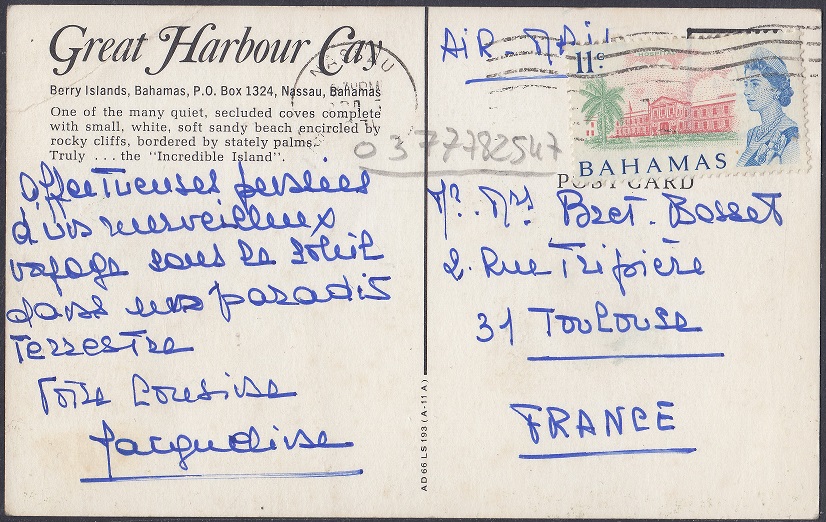 Great Harbour Cay
Berry Islands, Bahamas, P.O. Box 1324, Nassau, Bahamas
One of the many quiet, secluded coves complete
with small, white, soft sandy beach encircled by
rocky cliffs, bordered by stately palms.
Truly . . . the "Incredible Island".
0377782547
Affectueuses pensées
d'un merveilleux
voyage sous le soleil
dans un paradis
Terrestre
Votre Cousine
Jacqueline
AD 66 LS 193 (A-11 A)
NASSAU
AIR-MAIL
11c
BAHAMAS
POST CARD
Mr. Mrs Bret-Bosset
2. Rue Tripière
31 Toulouse
FRANCE